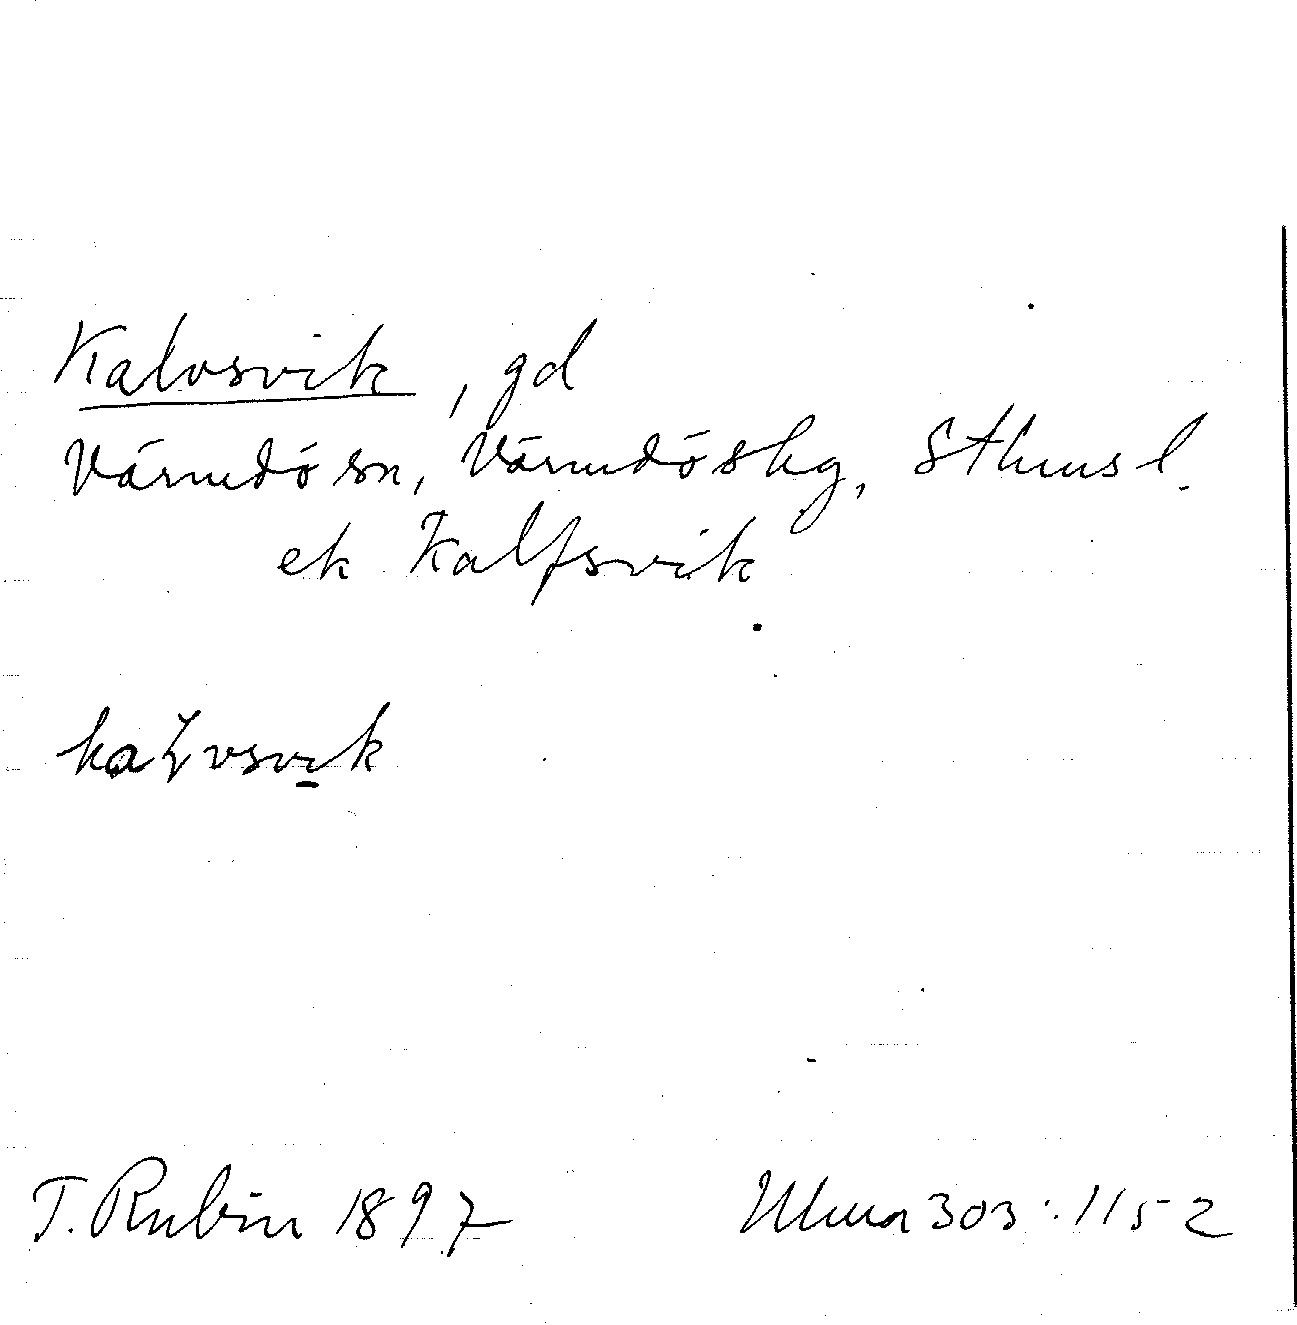 Kalvsvik, gd
Värmdö sn, Värmdö skg, Sthms l.
ek Kalfsvik
kaɭvsvik
T. Rubin 1897 Ulma 303:1152